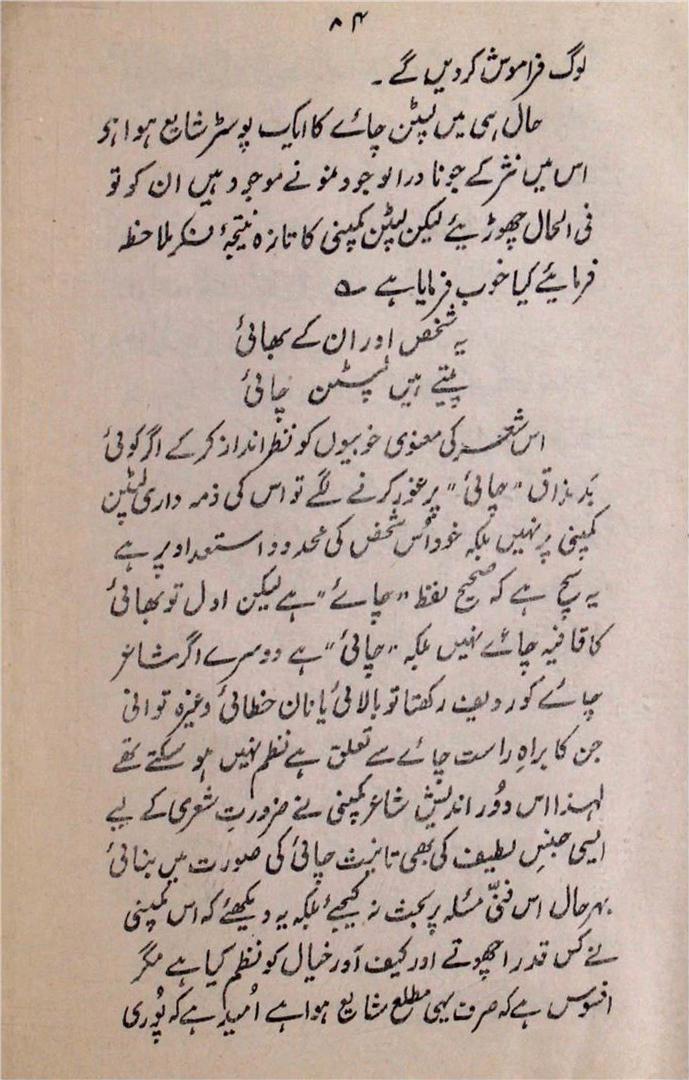 ۸۴
لوگ فراموش کردیں گے ۔
حال ہی میں لپٹن چائے کا ایک پوسٹر شایع ہوا ہو
اس میں نثر کے جو نادر الوجود نمونے موجود ہیں ان کو تو
فی الحال چھوڑیئے لیکن لپٹن کمپنی کا تازہ نتیجۂ فکر ملاحظہ
فرمایئے کیا خوب فرمایا ہے ؎
یہ شخص اور ان کے بھائی
پیتے ہیں لپٹن چائی
اس شعر کی معنوی خوبیوں کو نظر انداز کرکے اگر کوئی
بد مذاق "چائی" پر غور کرنے لگے تو اس کی ذمہ داری لپٹن
کمپنی پر نہیں بلکہ خود اُس شخص کی محدود استعداد پر ہے
یہ سچ ہے کہ صحیح لفظ "چائے" ہے لیکن اول تو بھائی
کا قافیہ چائے نہیں بلکہ "چائی" ہے دوسرے اگر شاعر
چائے کو ردیف رکھتا تو بالائی یا نان خطائی وغیرہ قوافی
جن کا براہِ راست چائے سے تعلق ہے نظم نہیں ہو سکتے تھے
لہذا اس دُور اندیش شاعر کمپنی نے ضرورتِ شعری کے لیے
ایسی جنسِ لطیف کی بھی تانیث چائی کی صورت میں بنائی
بہر حال اس فنّی مسئلہ پر بحث نہ کیجیۓ بلکہ یہ دیکھئے کہ اس کمپنی
نے کس قدر اچھوتے اور کیف آور خیال کو نظم کیا ہے مگر
افسوس ہے کہ صرف یہی مطلع شایع ہوا ہے اُمید ہے کہ پُوری